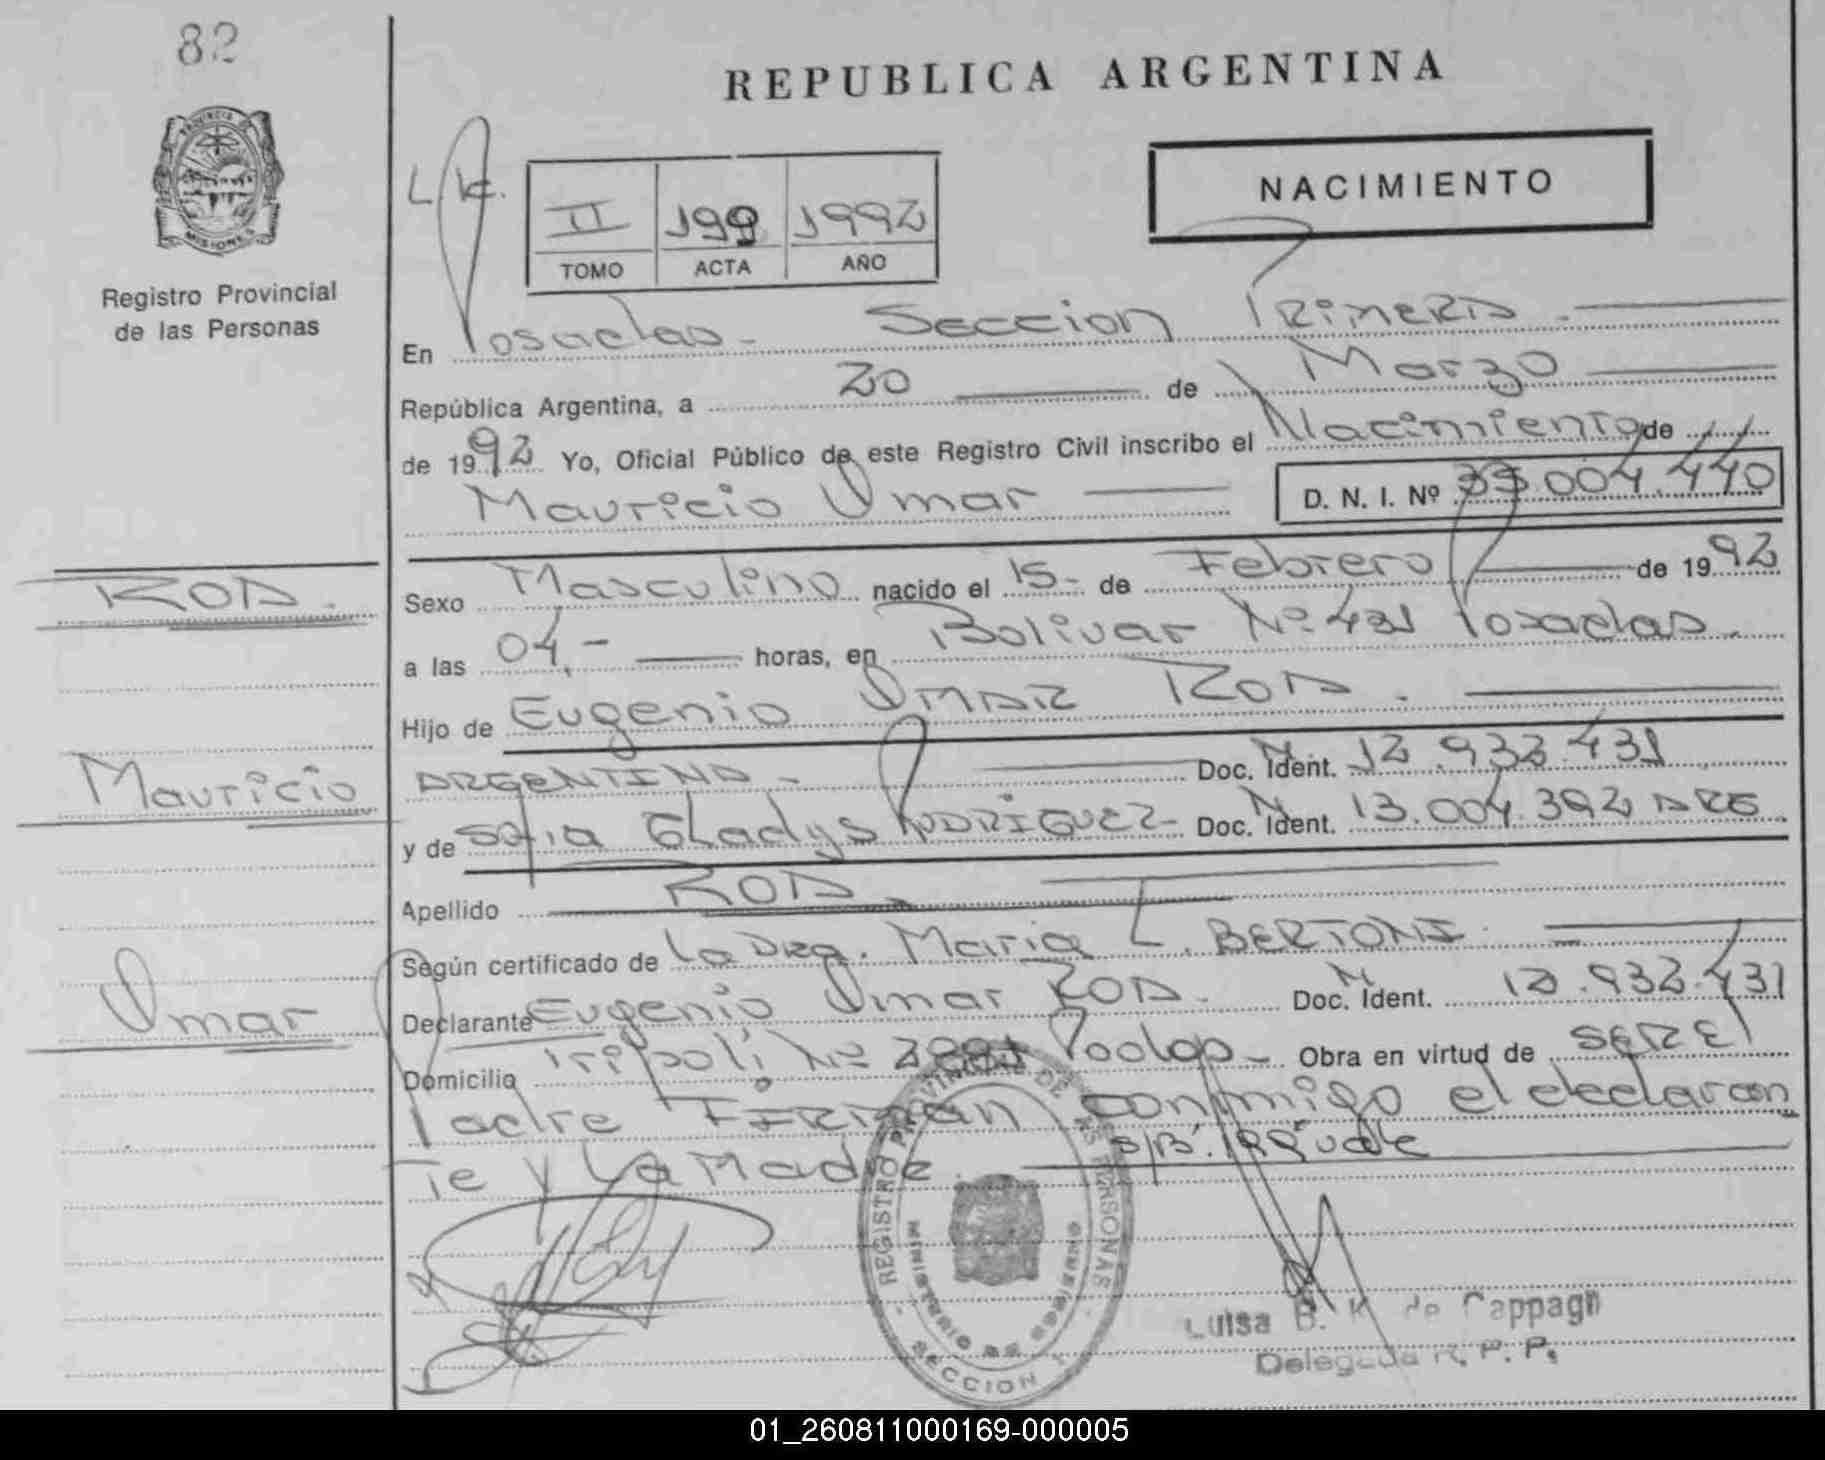 82
REPUBLICA ARGENTINA
PROVINCIA DE
MISIONES
Registro Provincial
de las Personas
NACIMIENTO
II 199 1992
TOMO ACTA AÑO
En Posadas - Seccion Primera.
República Argentina, a 20 de Marzo
de 1992 Yo, Oficial Público de este Registro Civil inscribo el Nacimiento de
Mauricio Omar D. N. I. Nº 33.004.440
ROA.
Sexo Masculino nacido el 15- de Febrero de 1992
a las 04,- horas, en Bolivar Nº 431 Posadas.
Hijo de Eugenio Omar ROA.
Mauricio
ARGENTINO - Doc. Ident. 12.932.431
y de Sofia Gladys RODRIGUEZ- Doc. Ident. 13.004.392 ARG
Apellido ROA
Según certificado de La Dra. Maria L. BERTONI.
Omar
Declarante Eugenio Omar ROA. Doc. Ident. 12.932.431
Domicilio Tripoli Nº Posdas - Obra en virtud de SER El
Padre FIRMAN conmigo el declaran
Te y La Madre. S/B. vale
REGISTRO PROVINCIAL DE LAS PERSONAS
MINISTERIO DE GOBIERNO
SECCION 1
Luisa B. K. de Cappagli
Delegada R. P. P.
01_260811000169-000005